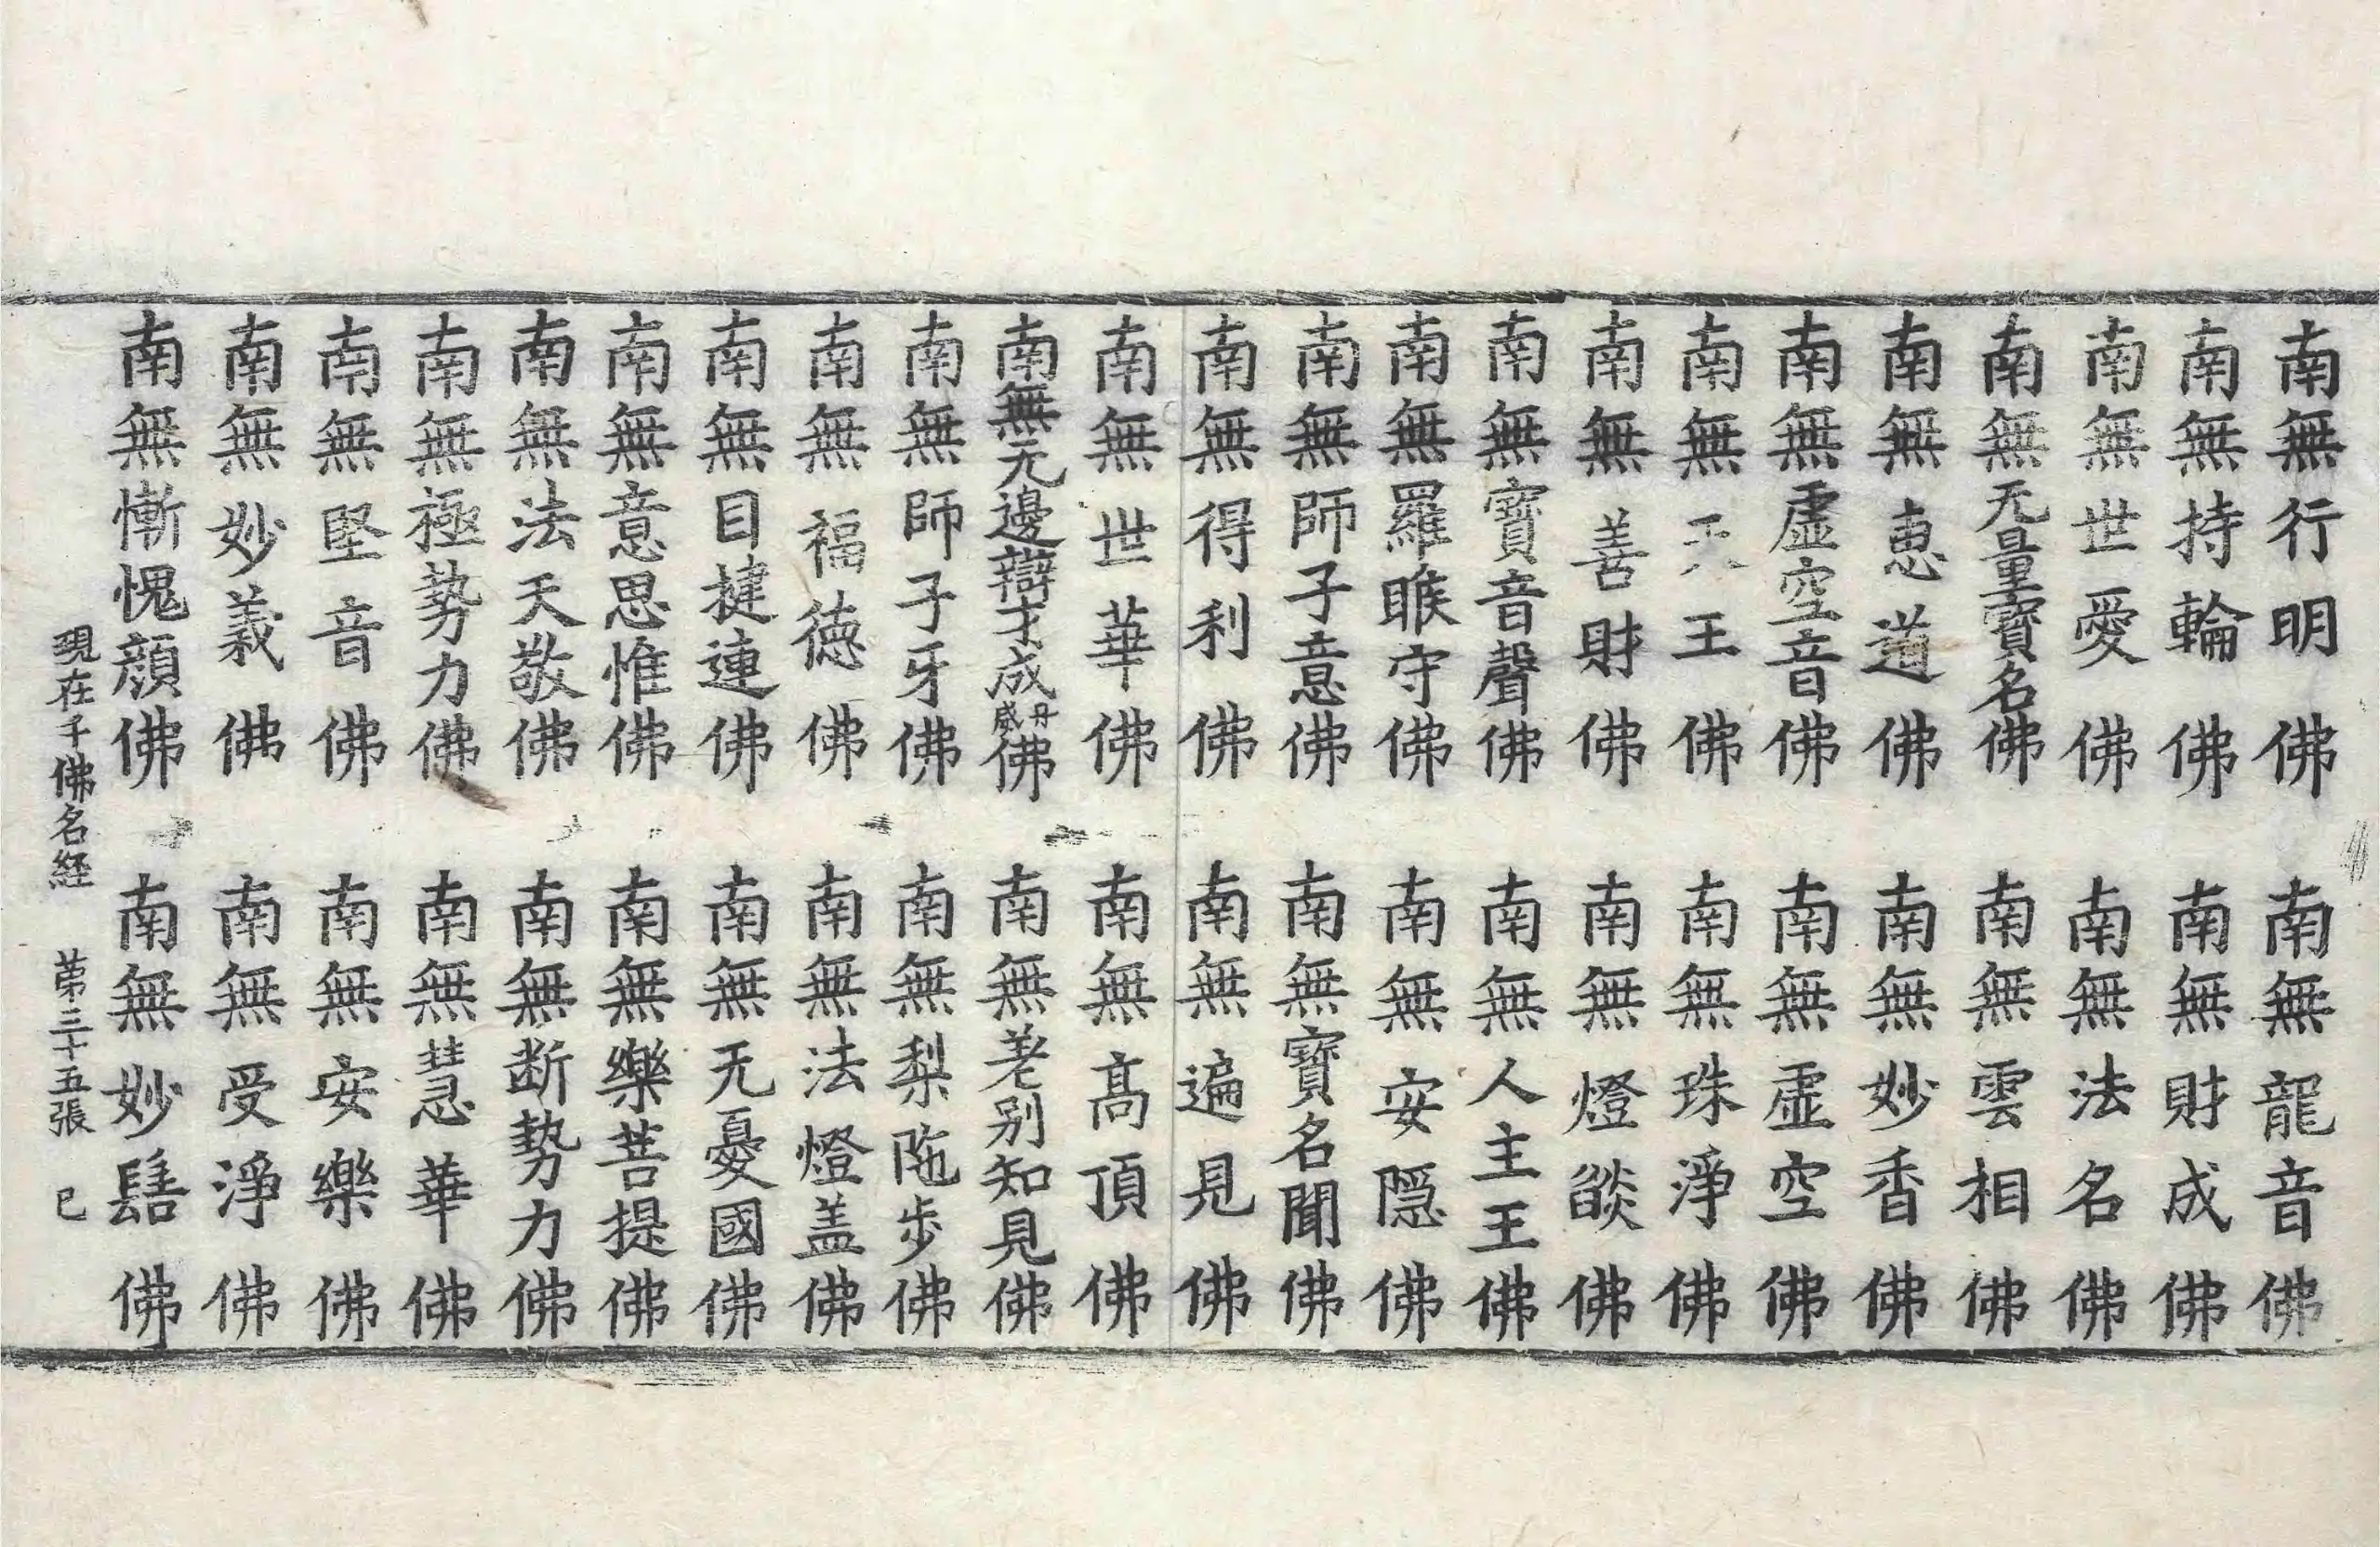 南無行明佛 南無龍音佛
南無持輪佛 南無財成佛
南無世愛佛 南無法名佛
南無无量寶名佛 南無雲相佛
南無惠道佛 南無妙香佛
南無虛空音佛 南無虛空佛
南無天王佛 南無珠淨佛
南無善財佛 南無燈燄佛
南無寶音聲佛 南無人主王佛
南無羅睺守佛 南無安隱佛
南無師子意佛 南無寶名聞佛
南無得利佛 南無遍見佛
南無世華佛 南無髙頂佛
南無无邊辯才成丹威佛 南無差別知見佛
南無師子牙佛 南無梨陁步佛
南無福德佛 南無法燈盖佛
南無目揵連佛 南無无憂國佛
南無意思惟佛 南無樂菩提佛
南無法天敬佛 南無断勢力佛
南無極勢力佛 南無慧華佛
南無堅音佛 南無安樂佛
南無妙義佛 南無受淨佛
南無慚愧顔佛 南無妙髻佛
現在千佛名経 第三十五張 已